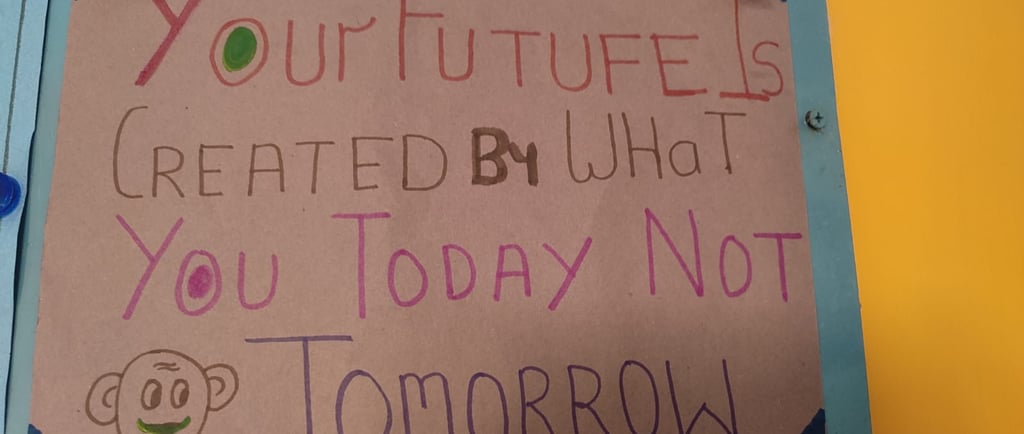 Your FUTUFE Is
CREATED By WHaT
YOU TODAY NOT
TOMORROW